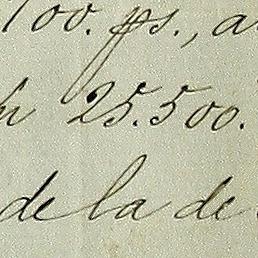 100. ps., a
25.500.
de la de